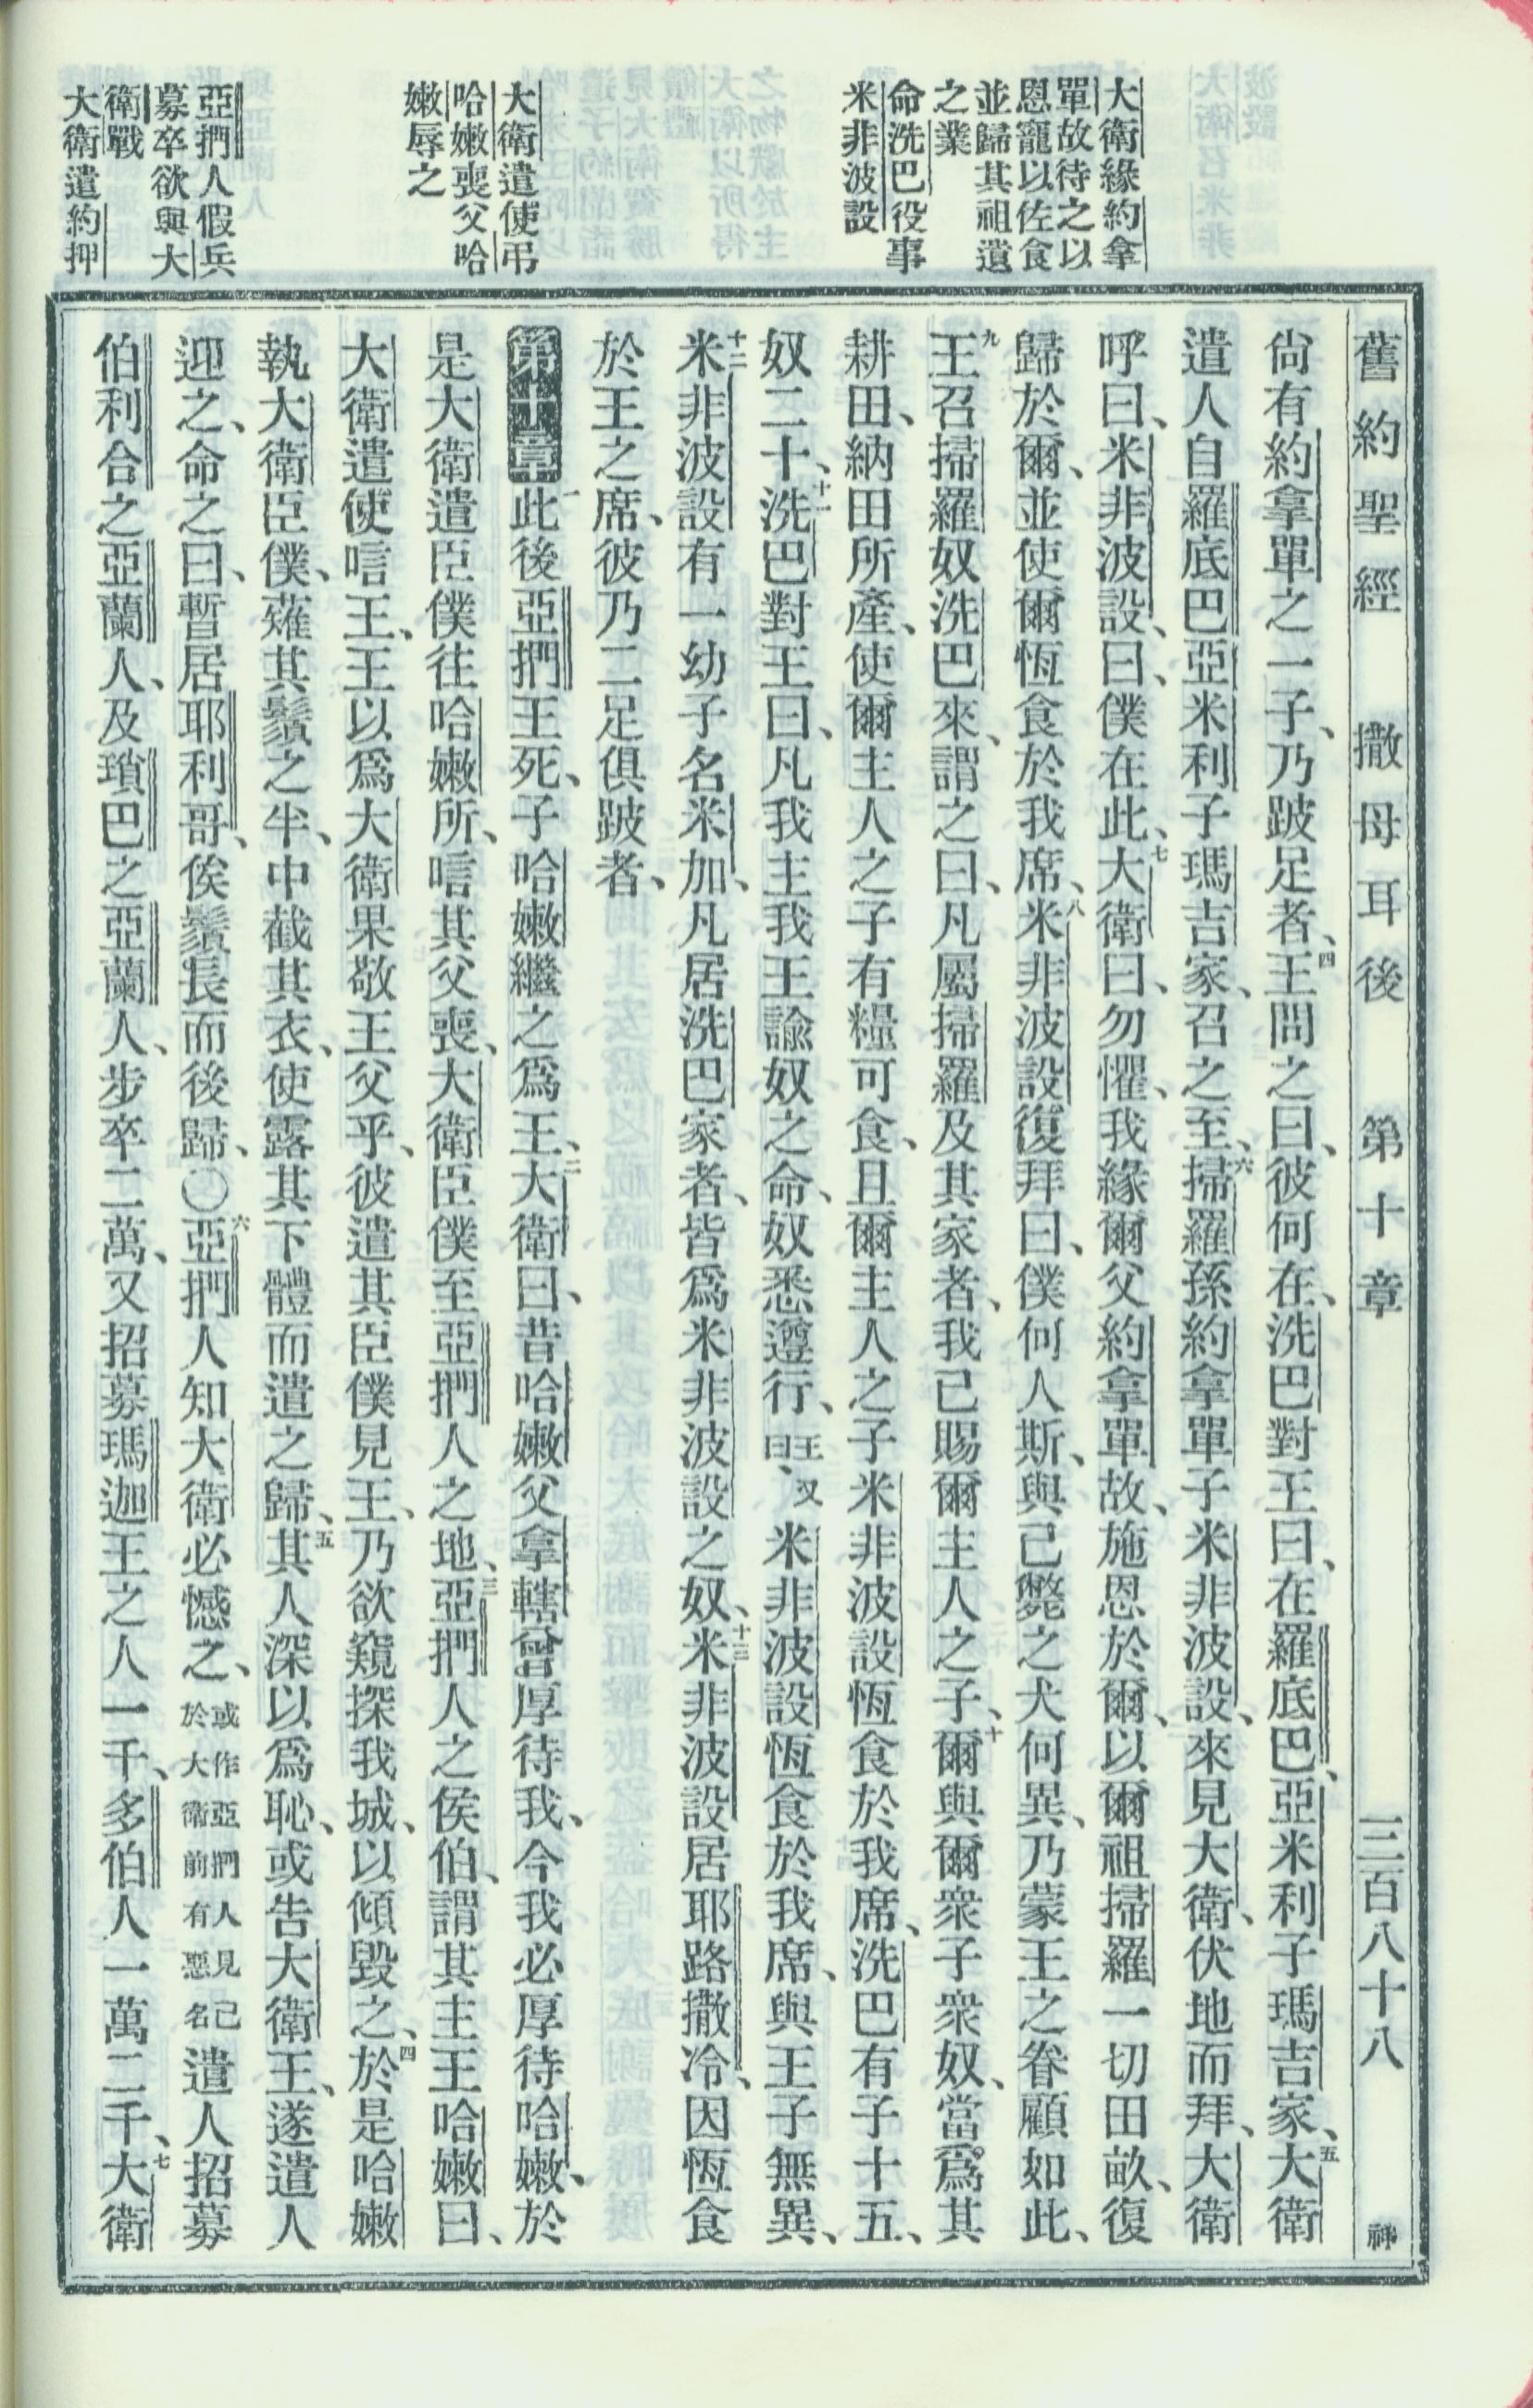 舊約聖經 撒母耳後 第十章 三百八十八 神
大衛緣約拿
單故待之以
恩寵以佐食
並歸其祖遺
之業
命洗巴役事
米非波設
大衛遣使弔
哈嫩喪父哈
嫩辱之
亞捫人假兵
募卒欲與大
衛戰
大衛遣約押
尚有約拿單之一子、乃跛足者、四王問之曰、彼何在、洗巴對王曰、在羅底巴、亞米利子瑪吉家、五大衛
遣人自羅底巴亞米利子瑪吉家、召之至、六掃羅孫約拿單子米非波設、來見大衛、伏地而拜、大衛
呼曰、米非波設、曰、僕在此、七大衛曰、勿懼、我緣爾父約拿單故、施恩於爾、以爾祖掃羅一切田畝、復
歸於爾、並使爾恆食於我席、八米非波設復拜曰、僕何人斯、與已斃之犬何異、乃蒙王之眷顧如此、
九王召掃羅奴洗巴來、謂之曰、凡屬掃羅及其家者、我已賜爾主人之子、十爾與爾衆子衆奴、當爲其
耕田、納田所產、使爾主人之子有糧可食、且爾主人之子米非波設恆食於我席、洗巴有子十五、
奴二十、十一洗巴對王曰、凡我主我王諭奴之命、奴悉遵行、王又曰、米非波設恆食於我席、與王子無異、
十二米非波設有一幼子名米加、凡居洗巴家者、皆爲米非波設之奴、十三米非波設居耶路撒冷、因恆食
於王之席、彼乃二足俱跛者、
第十章 一此後亞捫王死、子哈嫩繼之爲王、二大衛曰、昔哈嫩父拿轄曾厚待我、今我必厚待哈嫩、於
是大衛遣臣僕往哈嫩所、唁其父喪、大衛臣僕至亞捫人之地、三亞捫人之侯伯、謂其主王哈嫩曰、
大衛遣使唁王、王以爲大衛果敬王父乎、彼遣其臣僕見王、乃欲窺探我城、以傾毀之、四於是哈嫩
執大衛臣僕、薙其鬚之半、中截其衣、使露其下體而遣之歸、五其人深以爲恥、或告大衛王、遂遣人
迎之、命之曰、暫居耶利哥、俟鬚長而後歸、○六亞捫人知大衛必憾之、或作亞捫人見己於大衛前有惡名遣人招募
伯利合之亞蘭人、及瑣巴之亞蘭人、步卒二萬、又招募瑪迦王之人一千、多伯人一萬二千、七大衛